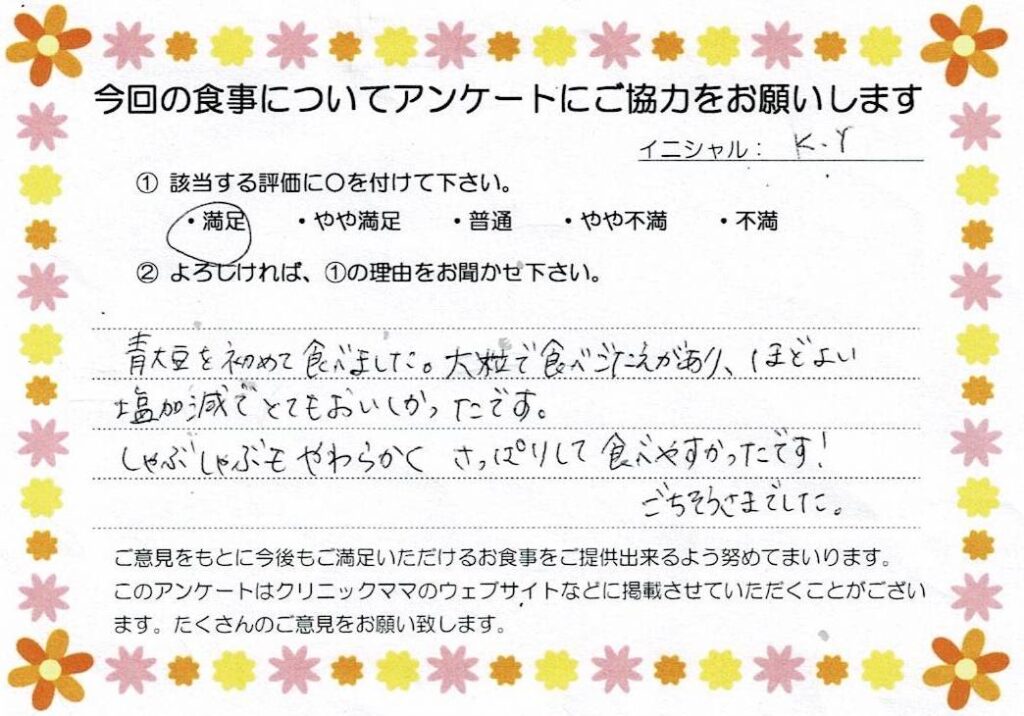 今回の食事についてアンケートにご協力をお願いします
イニシャル： K.Y
① 該当する評価に〇を付けて下さい。
・満足 ・やや満足 ・普通 ・やや不満 ・不満
② よろしければ、①の理由をお聞かせ下さい。
青大豆を初めて食べました。大粒で食べごたえがあり、ほどよい
塩加減でとてもおいしかったです。
しゃぶしゃぶもやわらかく さっぱりして食べやすかったです！
ごちそうさまでした。
ご意見をもとに今後もご満足いただけるお食事をご提供出来るよう努めてまいります。
このアンケートはクリニックママのウェブサイトなどに掲載させていただくことがござい
ます。たくさんのご意見をお願い致します。